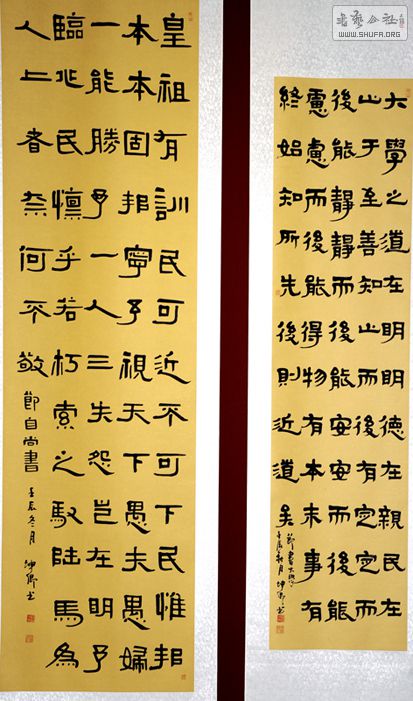 書藝公社
WWW.SHUFA.ORG
大學之道在明明德在親民在
止于至善知止而後有定定而
後能靜靜而後能安安而後能
慮慮而後能得物有本末事有
終始知所先後則近道矣
節書大學
壬辰秋月坤书
皇祖有訓民可近不可下民惟邦
本本固邦寧予視天下愚夫愚婦
一能勝予一人三失怨豈在明予
臨兆民懍乎若朽索之馭陸馬為
人上者奈何不敬
節自尚書
壬辰冬月坤书